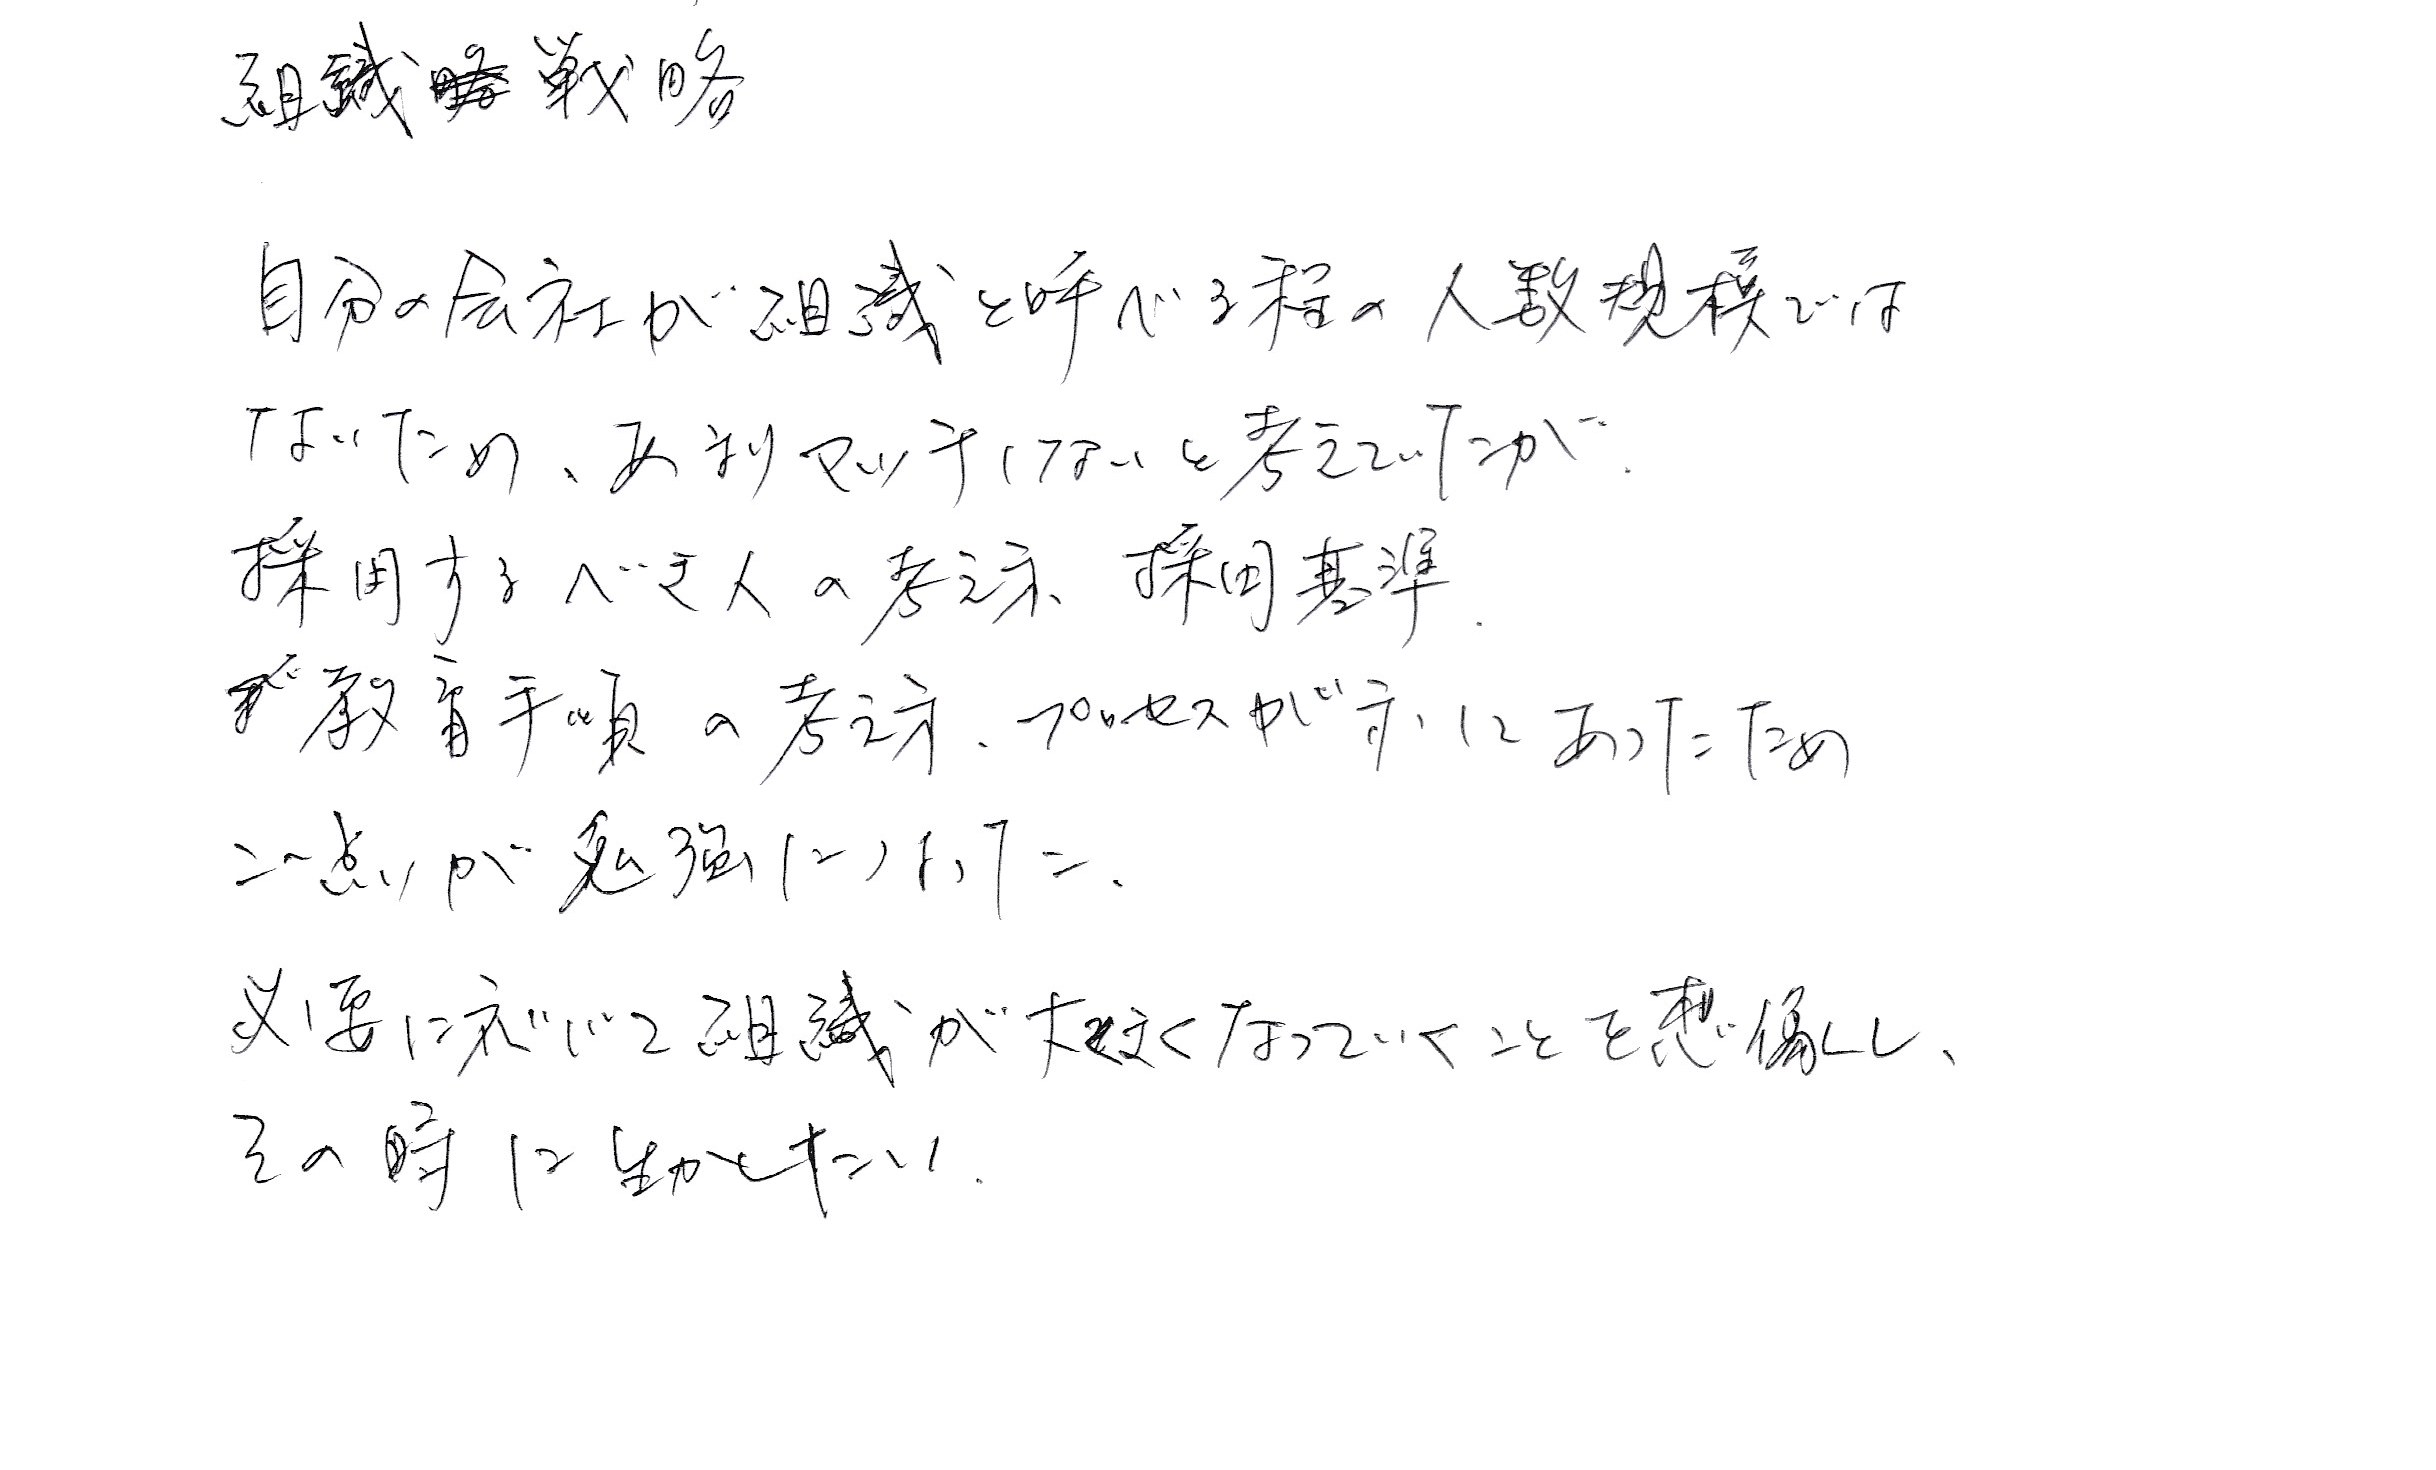 組織戦略
自分の会社が組織と呼べる程の人数規模では
ないため、あまりマッチしないと考えていたが、
採用するべき人の考え方、採用基準、
教育手順の考え方、プロセスが にあったため
点が勉強になった。
必要に応じて組織が大きくなっていくことを想像し、
その時に生かしたい。